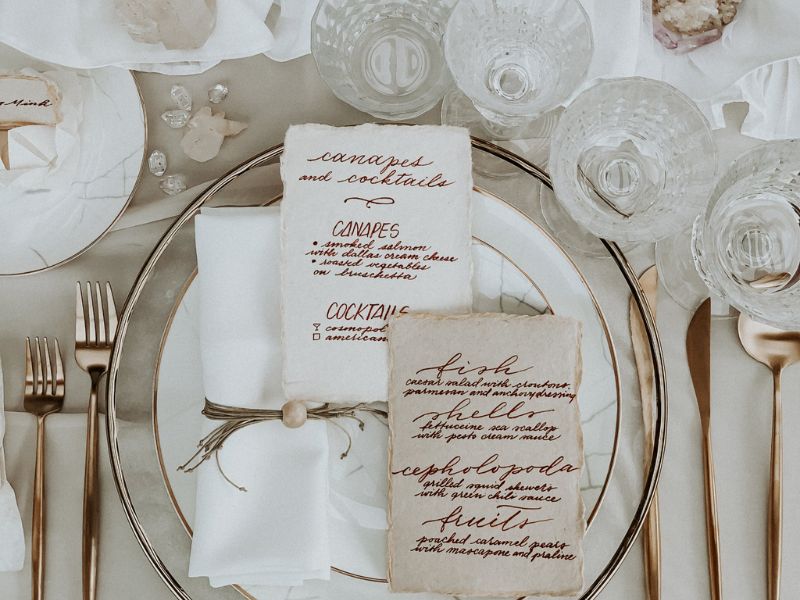 canapes
and cocktails
CANAPES
• smoked salmon
with dallas cream cheese
• roasted vegetables
on bruschetta
COCKTAILS
cosmopol
american
fish
caesar salad with croutons,
parmesan and anchovy dressing
shells
fettuccine sea scallop
with pesto cream sauce
cepholopoda
grilled squid skewers
with green chile sauce
fruits
poached caramel pears
with mascapone and praline
Mink